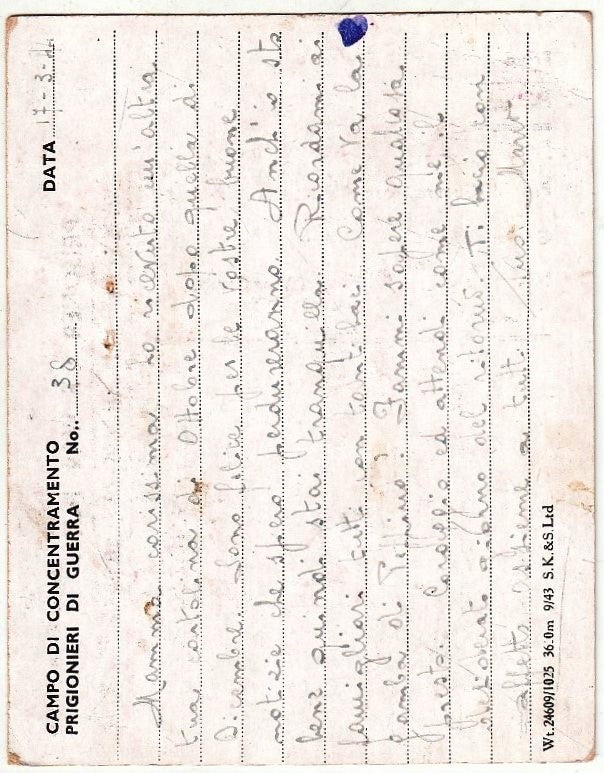 CAMPO DI CONCENTRAMENTO
PRIGIONIERI DI GUERRA No.. 38
DATA 17-3-4
Mamma carissima ho ricevuto un'altra
tua cartolina di Ottobre dopo quella di
Dicembre. Sono felice per le vostre buone
notizie che spero perdureranno. Anch'io sto
bene quindi stai tranquilla. Ricordami ai
famigliari tutti con tanti baci. Come va la
gamba di Peppino? Fammi sapere qualcosa
presto. Coraggio ed attendi come me il
giorno del ritorno. Ti bacio con
affetto assieme a tutti. Tuo Mario
Wt. 24609/1025 36.0m 9/43 S.K.&S.Ltd